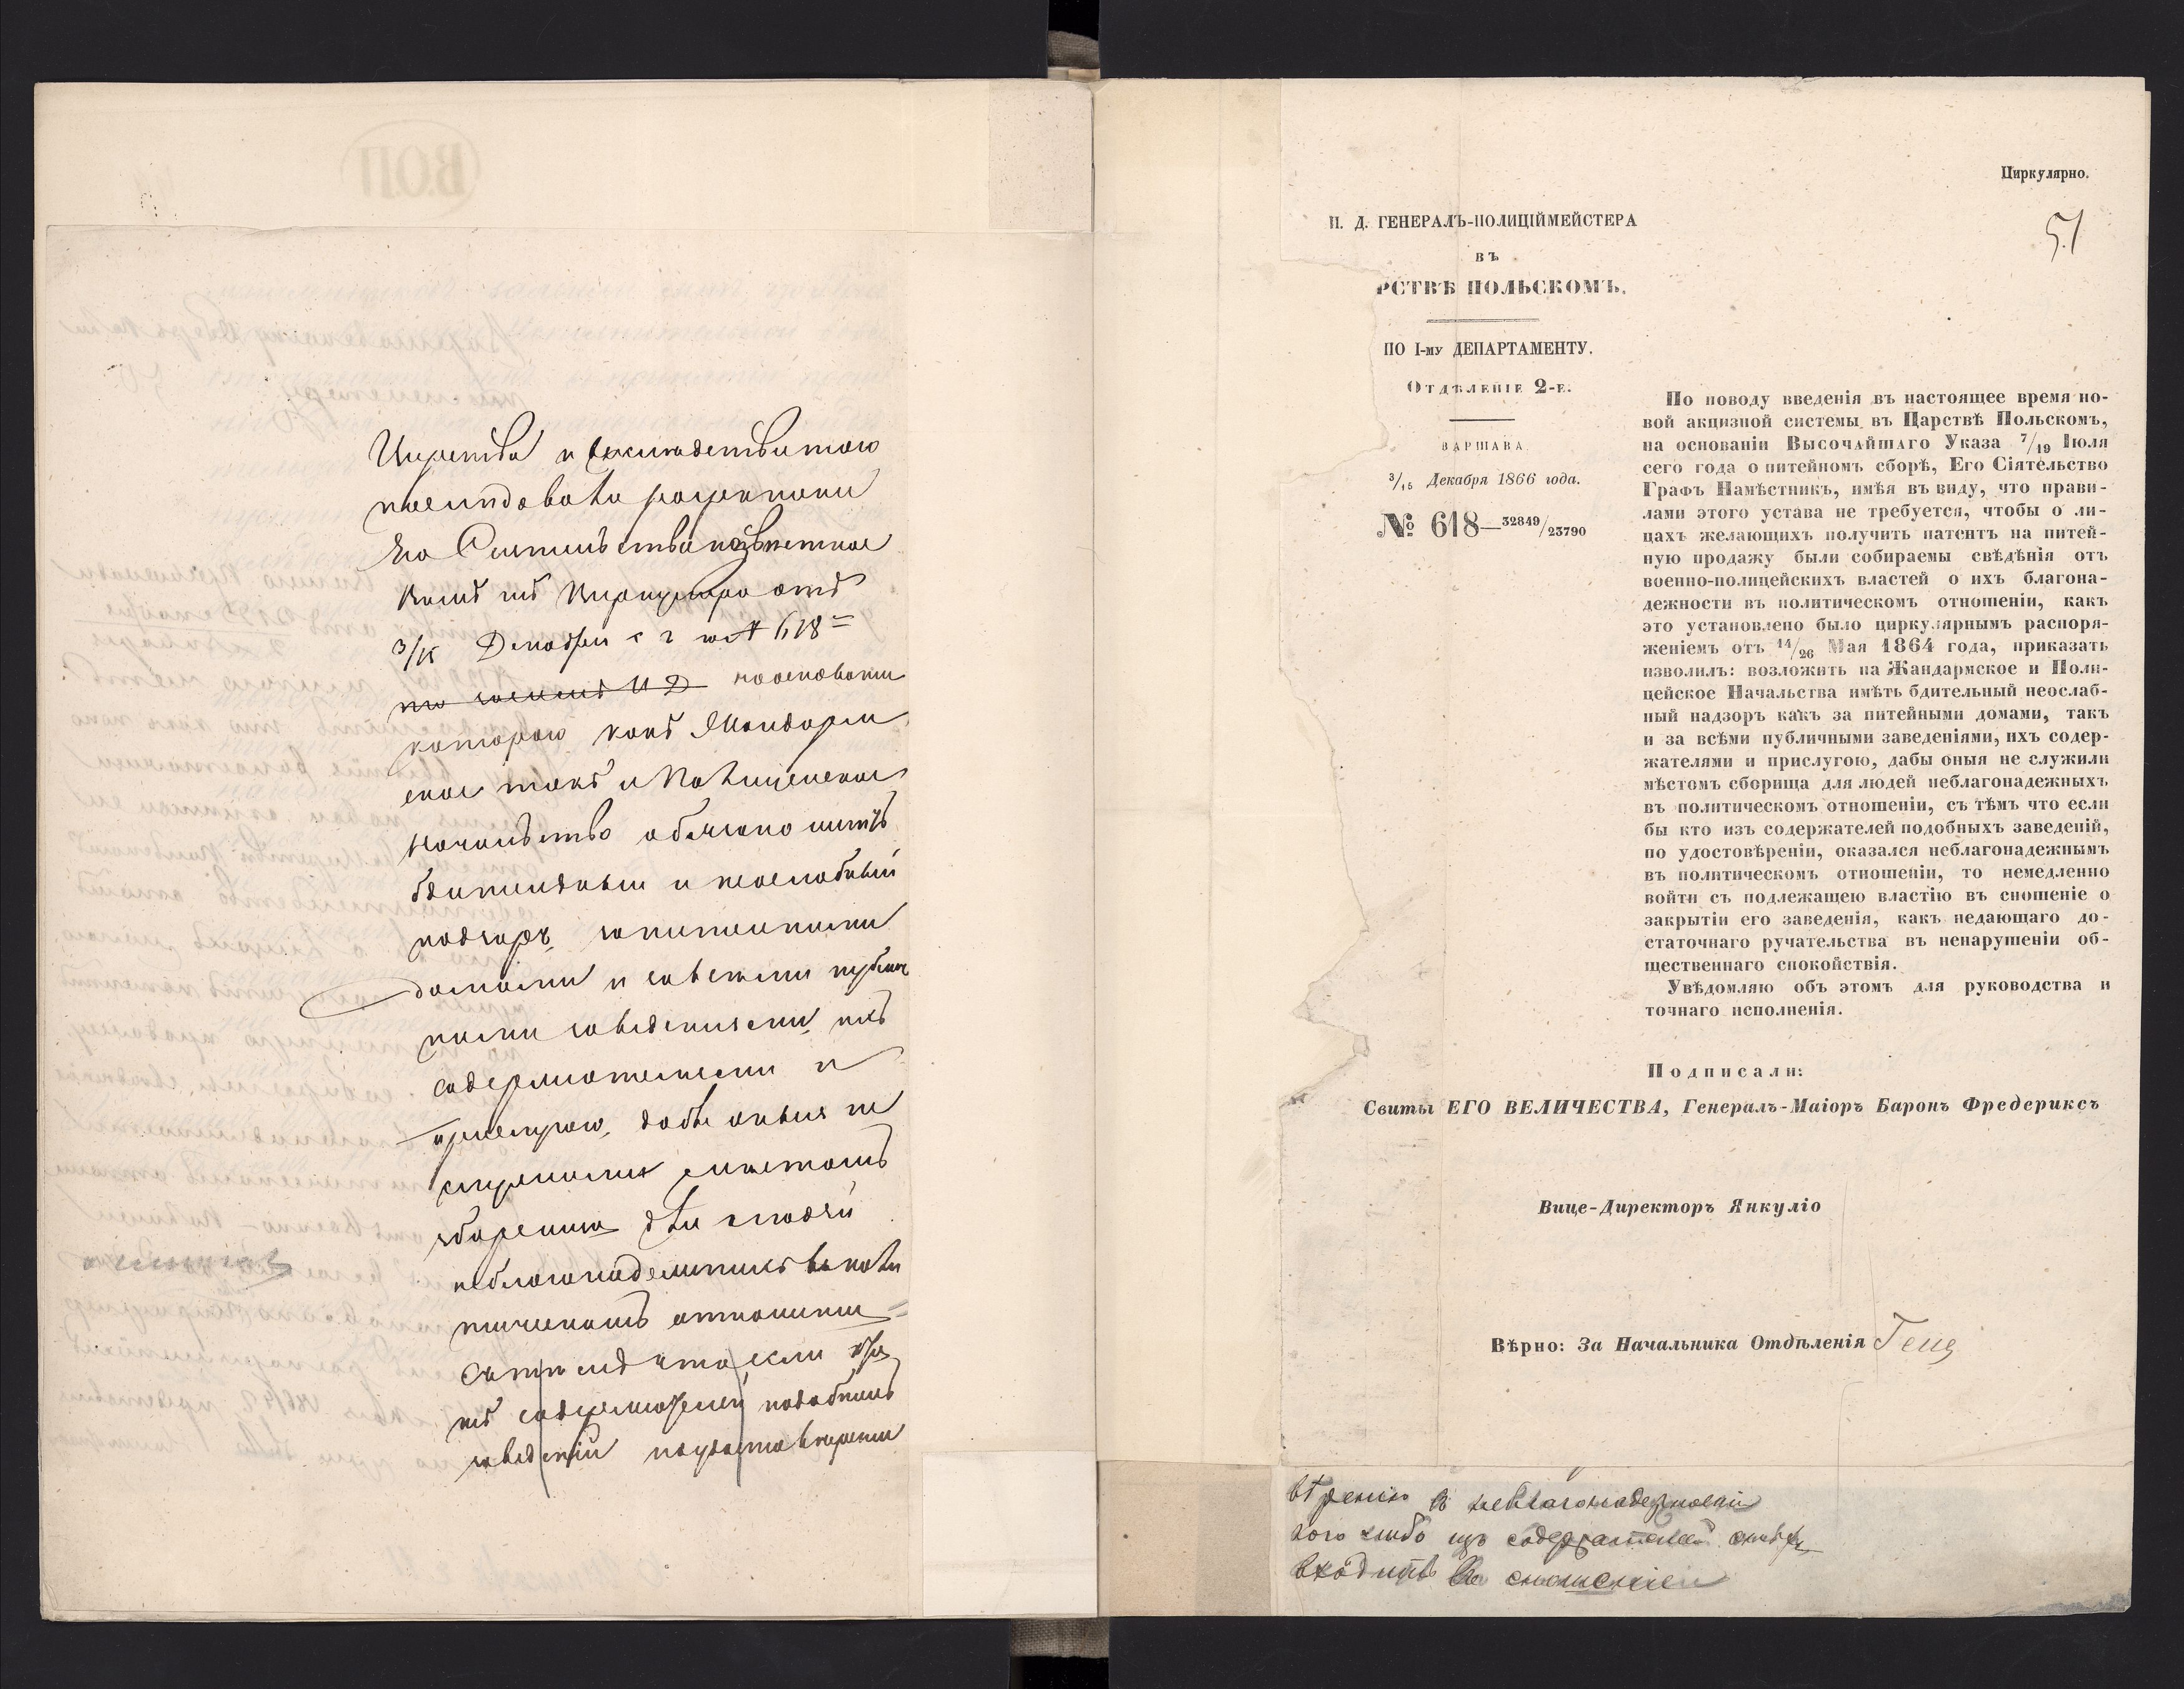 Царства и
последовало распоряжение
Его Сіятельства
отъ
3/15 Декабря с г № 618
на основаніи
котораго какъ Жандарм
ское такъ и Полицейское
начальство обязано имѣть
бдительный и неослабный
надзоръ за питейными
домами и за всѣми публич
ными заведеніями, ихъ
содержателями и
прислугою, дабы оныя не
служили мѣстомъ
сборища для людей
неблагонадежныхъ въ поли
тическомъ отношеніи
съ тѣмъ что если кто
изъ содержателей подобныхъ
заведеній по удостовѣреніи
Циркулярно.
51
И. Д. ГЕНЕРАЛЪ-ПОЛИЦІЙМЕЙСТЕРА
ВЪ
РСТВѢ ПОЛЬСКОМЪ.
ПО I-му ДЕПАРТАМЕНТУ.
Отдѣленіе 2-е.
ВАРШАВА
3/15 Декабря 1866 года.
№ 618—32849/23790
По поводу введенія въ настоящее время но-
вой акцизной системы въ Царствѣ Польскомъ,
на основаніи Высочайшаго Указа 7/19 Іюля
сего года о питейномъ сборѣ, Его Сіятельство
Графъ Намѣстникъ, имѣя въ виду, что прави-
лами этого устава не требуется, чтобы о ли-
цахъ желающихъ получить патентъ на питей-
ную продажу были собираемы свѣдѣнія отъ
военно-полицейскихъ властей о ихъ благона-
дежности въ политическомъ отношеніи, какъ
это установлено было циркулярнымъ распоря-
женіемъ отъ 14/26 Мая 1864 года, приказать
изволилъ: возложить на Жандармское и Поли-
цейское Начальства имѣть бдительный неослаб-
ный надзоръ какъ за питейными домами, такъ
и за всѣми публичными заведеніями, ихъ содер-
жателями и прислугою, дабы оныя не служили
мѣстомъ сборища для людей неблагонадежныхъ
въ политическомъ отношеніи, съ тѣмъ что если
бы кто изъ содержателей подобныхъ заведеній,
по удостовѣреніи, оказался неблагонадежнымъ
въ политическомъ отношеніи, то немедленно
войти съ подлежащею властію въ сношеніе о
закрытіи его заведенія, какъ недающаго до-
статочнаго ручательства въ ненарушеніи об-
щественнаго спокойствія.
Увѣдомляю объ этомъ для руководства и
точнаго исполненія.
Подписали:
Свиты ЕГО ВЕЛИЧЕСТВА, Генералъ-Маіоръ Баронъ Фредериксъ
Вице-Директоръ Янкуліо
Вѣрно: За Начальника Отдѣленія
вѣренію въ неблагонадежности
кого либо изъ содержателей
входить въ сношеніе